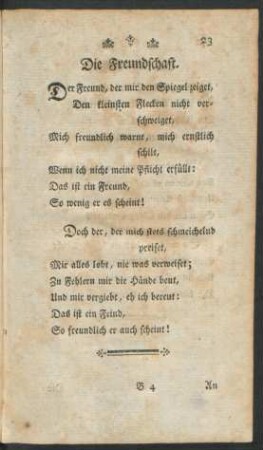 23
Die Freundschaft.
Der Freund, der mir den Spiegel zeiget,
Den kleinsten Flecken nicht ver-
schweiget,
Mich freundlich warnt, mich ernstlich
schilt,
Wenn ich nicht meine Pflicht erfüllt:
Das ist ein Freund,
So wenig er es scheint!
Doch der, der mich stets schmeichelnd
preiset,
Mir alles lobt, nie was verweiset;
Zu Fehlern mir die Hände beut,
Und mir vergiebt, eh ich bereut:
Das ist ein Feind,
So freundlich er auch scheint!
B 4 An